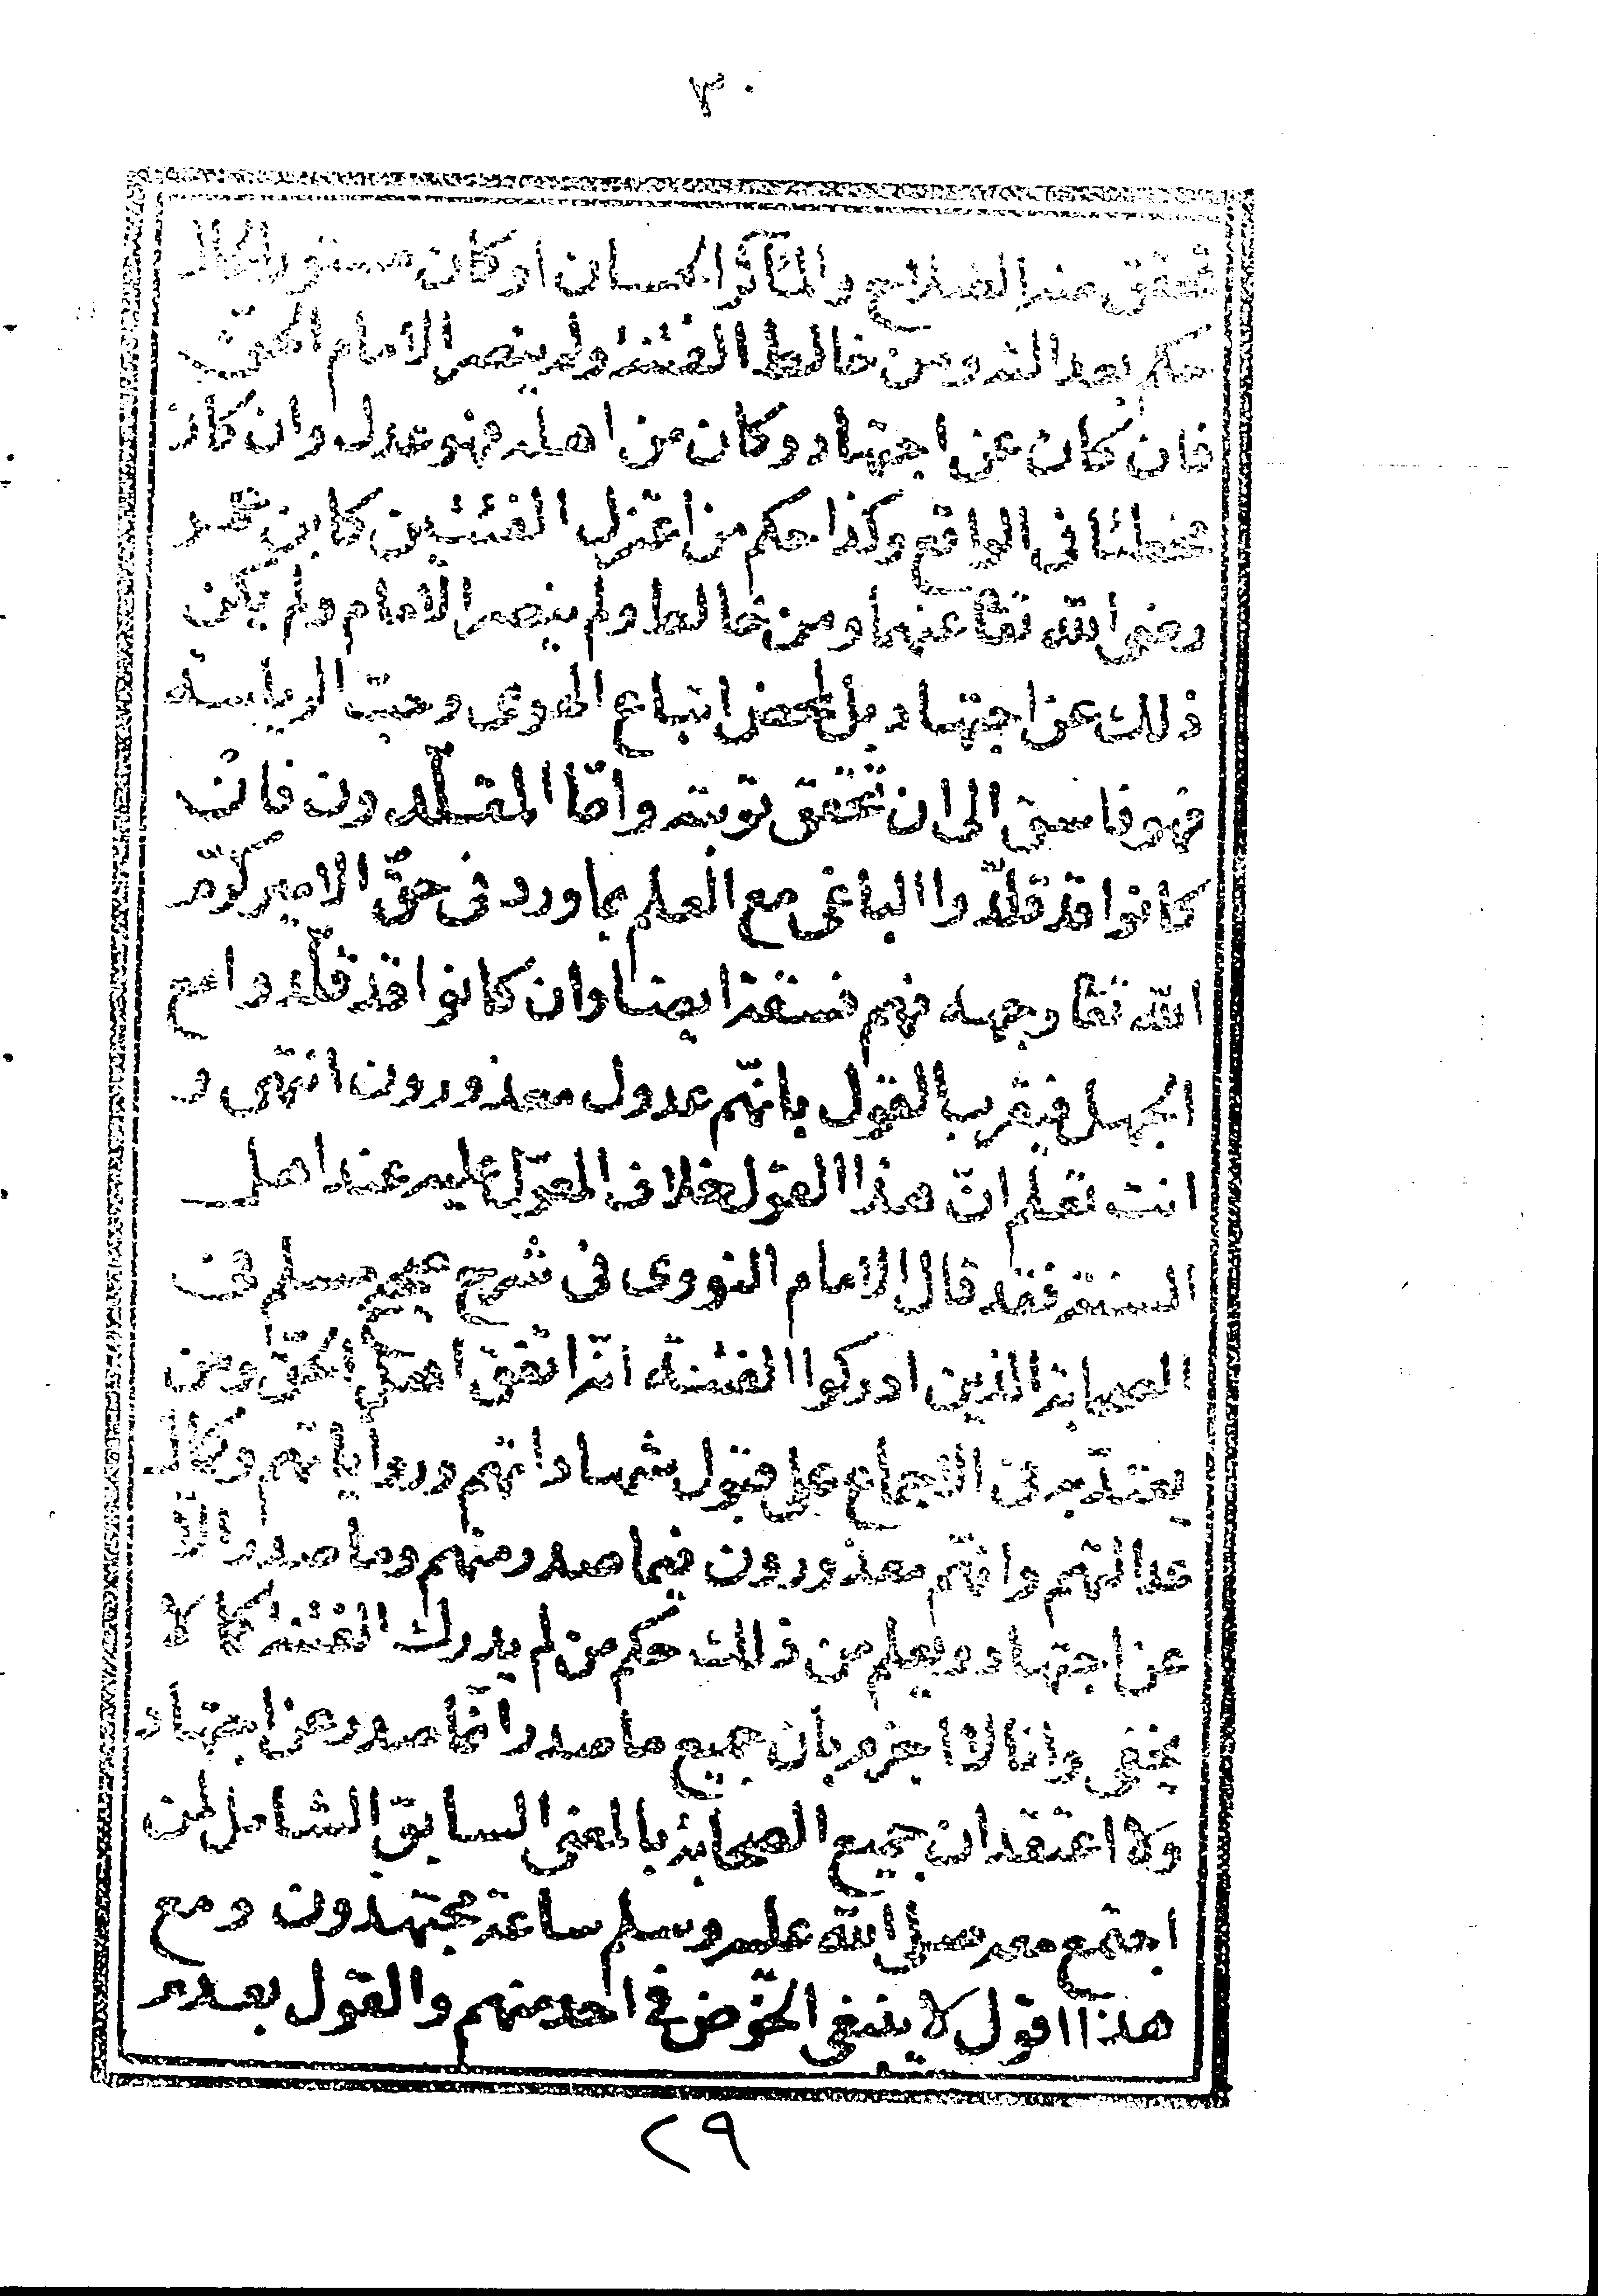 ٣٠
تحقق منه الصلاح والمآثر الحسان او كان مستور الحال
حكم بعدالته ومن خالط الفتنة ولم ينصر الامام الحق
فان كان عن اجتهاد وكان من اهله فهو عدل وان كان
مخطئا فى الواقع وكذا حكم من اعتزل الفئتين كابن عمر
رضى الله تعا عنهما ومن خالط ولم ينصر الامام ولم يكن
ذلك عن اجتهاد بل لمحض اتباع الهوى وحبّ الرياسة
فهو فاسق الى ان تحقق توبته وامّا المقلّدون فان
كانوا قد قلّدوا الباغى مع العلم بما ورد فى حقّ الامير كرّم
الله تعا وجهه فهم فسقة ايضا وان كانوا قد قلّدوا مع
الجهل فيقرب القول بانهّم عدول معذورون انتهى و
انت تعلم انّ هذا القول خلاف المعوّل عليه عند اهل
السنة فقد قال الامام النووى فى شرح صحيح مسلم فى
الصحابة الذين ادركوا الفتنة انه اتّفق اهل الحقّ ومن
يعتدّ به فى الاجماع على قبول شهاداتهم ورواياتهم وكمال
عدالتهم وانهّم معذورون فيما صدر منهم وما صدر الّا
عن اجتهاد ويعلم من ذلك حكم من لم يدرك الفتنة كما لا
يخفى وانا لا اجزم بان جميع ما صدر انّما صدر عن اجتهاد
ولا اعتقد ان جميع الصحابة بالمعنى السابق الشامل لمن
اجتمع معه صلى الله عليه وسلم ساعة مجتهدون ومع
هذا اقول لا ينبغى الخوض فى احد منهم والقول بعدم
٢٩